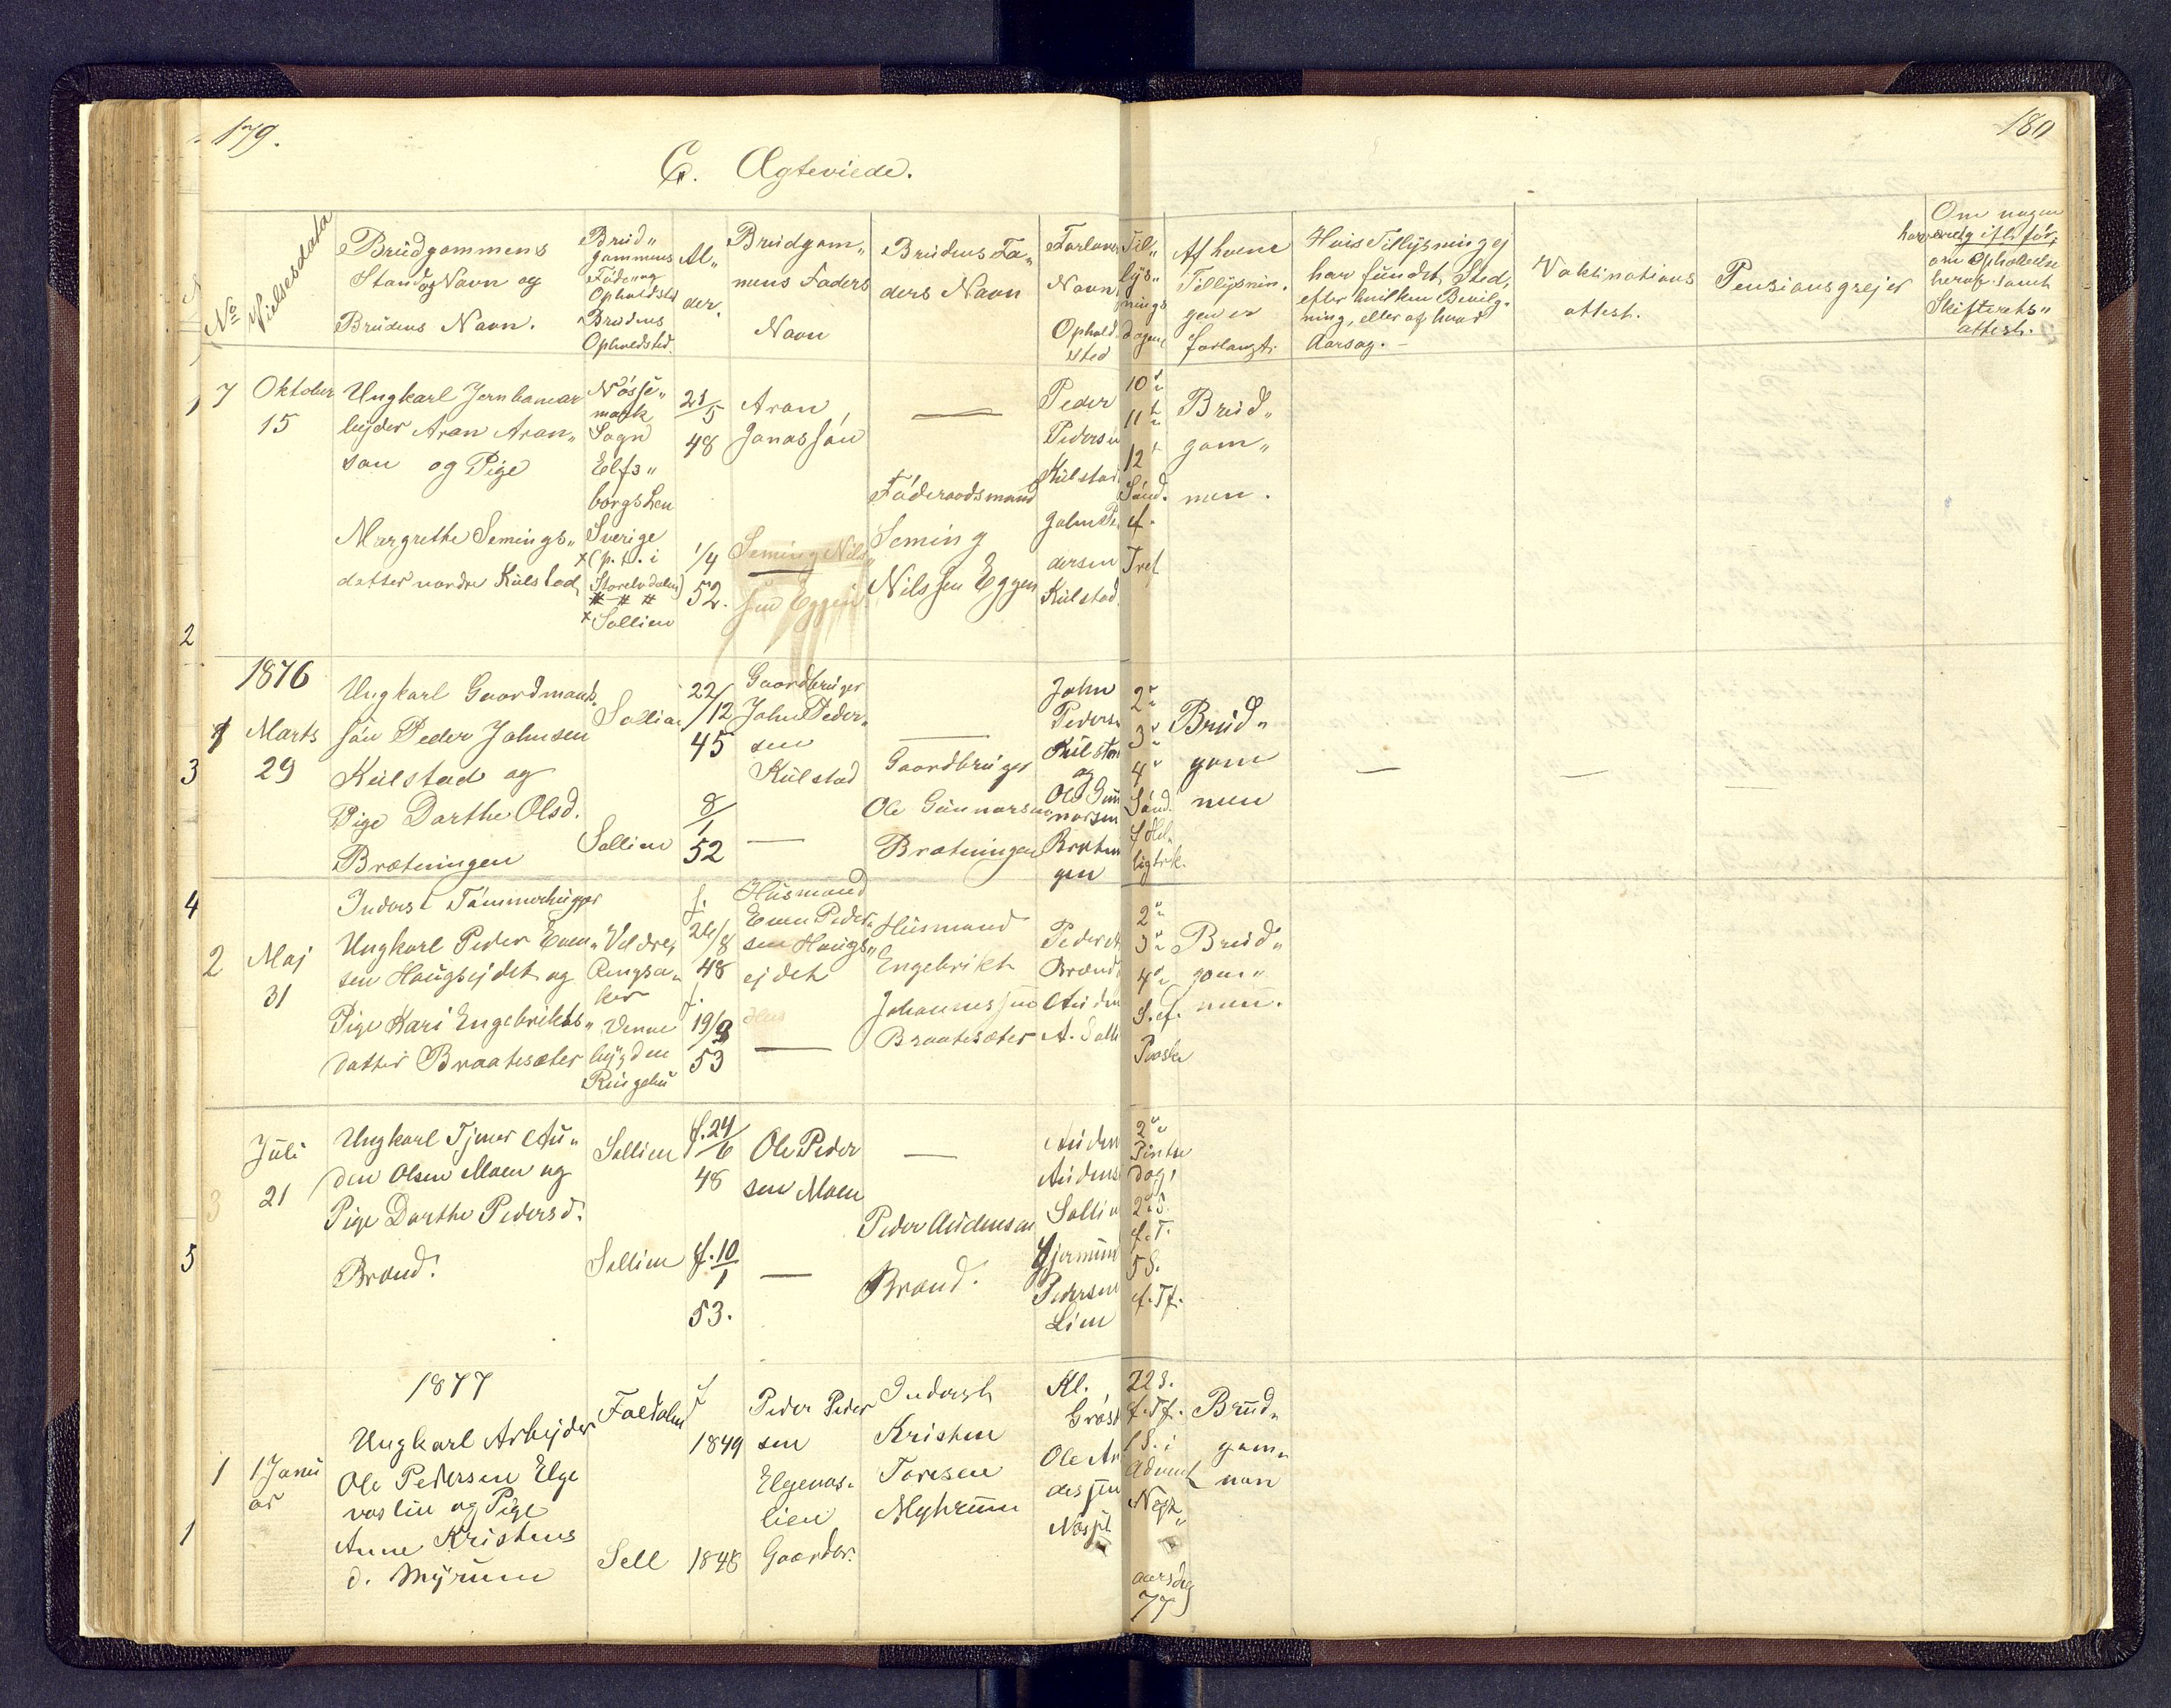 179.
180
C. Ægteviede.
No
Vielsesdata
Brudgommens
Stand og Navn og
Brudens Navn.
Brud„
gommens
Føde- og
Opholdsted
Brudens
Opholdsted.
Al„
der.
Brudgom„
mens Faders
Navn
Brudens Fa„
ders Navn
Forlovers
Navn
Ophold
sted
Til„
lys„
nings
dagene
Af hvem
Tillysnin„
gen er
forlangt.
Hvis Tillysning ej
har fundet Sted,
efter hvilken Bevilg„
ning, eller af hvad
Aarsag. –
Vakinations
attest.
Pensionsgrejer
Om nogen
har været gift før,
om Opholdelse
heraf samt
Skifterets„
attest.
7
Oktober
15
Ungkarl Jernbanear
bejder Aron Aron„
son og Pige
Margrethe Semings„
datter nordre Kulstad
Nøsse„
mark
Sogn
Elfs„
borgs Len
Sverige
x (p. t. i
Storelvdalen)
x Sollien
21/5
48
1/4
52.
Aron
Jonassøn
Seming Nils„
sen Eggen
—
Føderaadsmand
Seming
Nilssen Eggen
Peder
Pedersen
Kulstad
John Pe
dersen
Kulstad
10de
11te
12te
Sønd.
ef.
Tref
Brud„
gom„
men.
2
1876
1
Marts
29
Ungkarl Gaardmands
søn Peder Johnsen
Kulstad og
Pige Dorthe Olsd.
Brætningen
Sollien
Sollien
22/12
45
8/1
52
Gaardbruger
John Peder„
sen
Kulstad
—
—
Gaardbruger
Ole Gunnarsen
Brætningen
John
Peders.
Kulstad
og
Ole Gun
narsen
Brætnin
gen
2den
3die
4de
Sønd.
f Hel„
ligtrk.
Brud„
gom
men
—
—
—
3
4
2
Maj
31
Inderst Tømmerhugger
Ungkarl Peder Even„
sen Haugsejdet og
Pige Kari Engebrikts„
datter Braatesæter
Veldre,
Ringsa„
ker
Venne
bygden
Ringebu
f.
24/8
48
f.
19/9
53
Husmand
Even Peder„
sen Haugs„
ejdet
—
Husmand
Engebrikt
Johannessen
Braatesæter
Peder
Brænd
Auden
A. Solli
2den
3die
4de
S. ef.
Paaske
Brud„
gom„
men.
3
Juli
21
Ungkarl Tjener Au„
den Olsen Moen og
Pige Dorthe Pedersd.
Brænd.
Sollien
Sollien
f. 24/6
48
f. 10/1
53.
Ole Peder
sen Moen
—
—
Peder Audensen
Brænd.
Auden
Audens
Sollien
Gjermund
Pedersen
Lien
2den
Pintse
dag,
2den S.
f. T.
5 S.
ef. Tf.
5
1877
1
1 Janu
ar
Ungkarl Arbejder
Ole Pedersen Elge
vaslien og Pige
Anne Kristens
d. Myrum
Foldalen
Sell
f
1849
1848
Peder Peder
sen
Elgevas„
lien
Gaardbr.
Inderst
Kristen
Toresen
Myhrum
Kl.
Ole An
dersen
22 S.
f. Tf.
1 S. i
Advent
aarsdag
77
Brud„
gom„
men
1